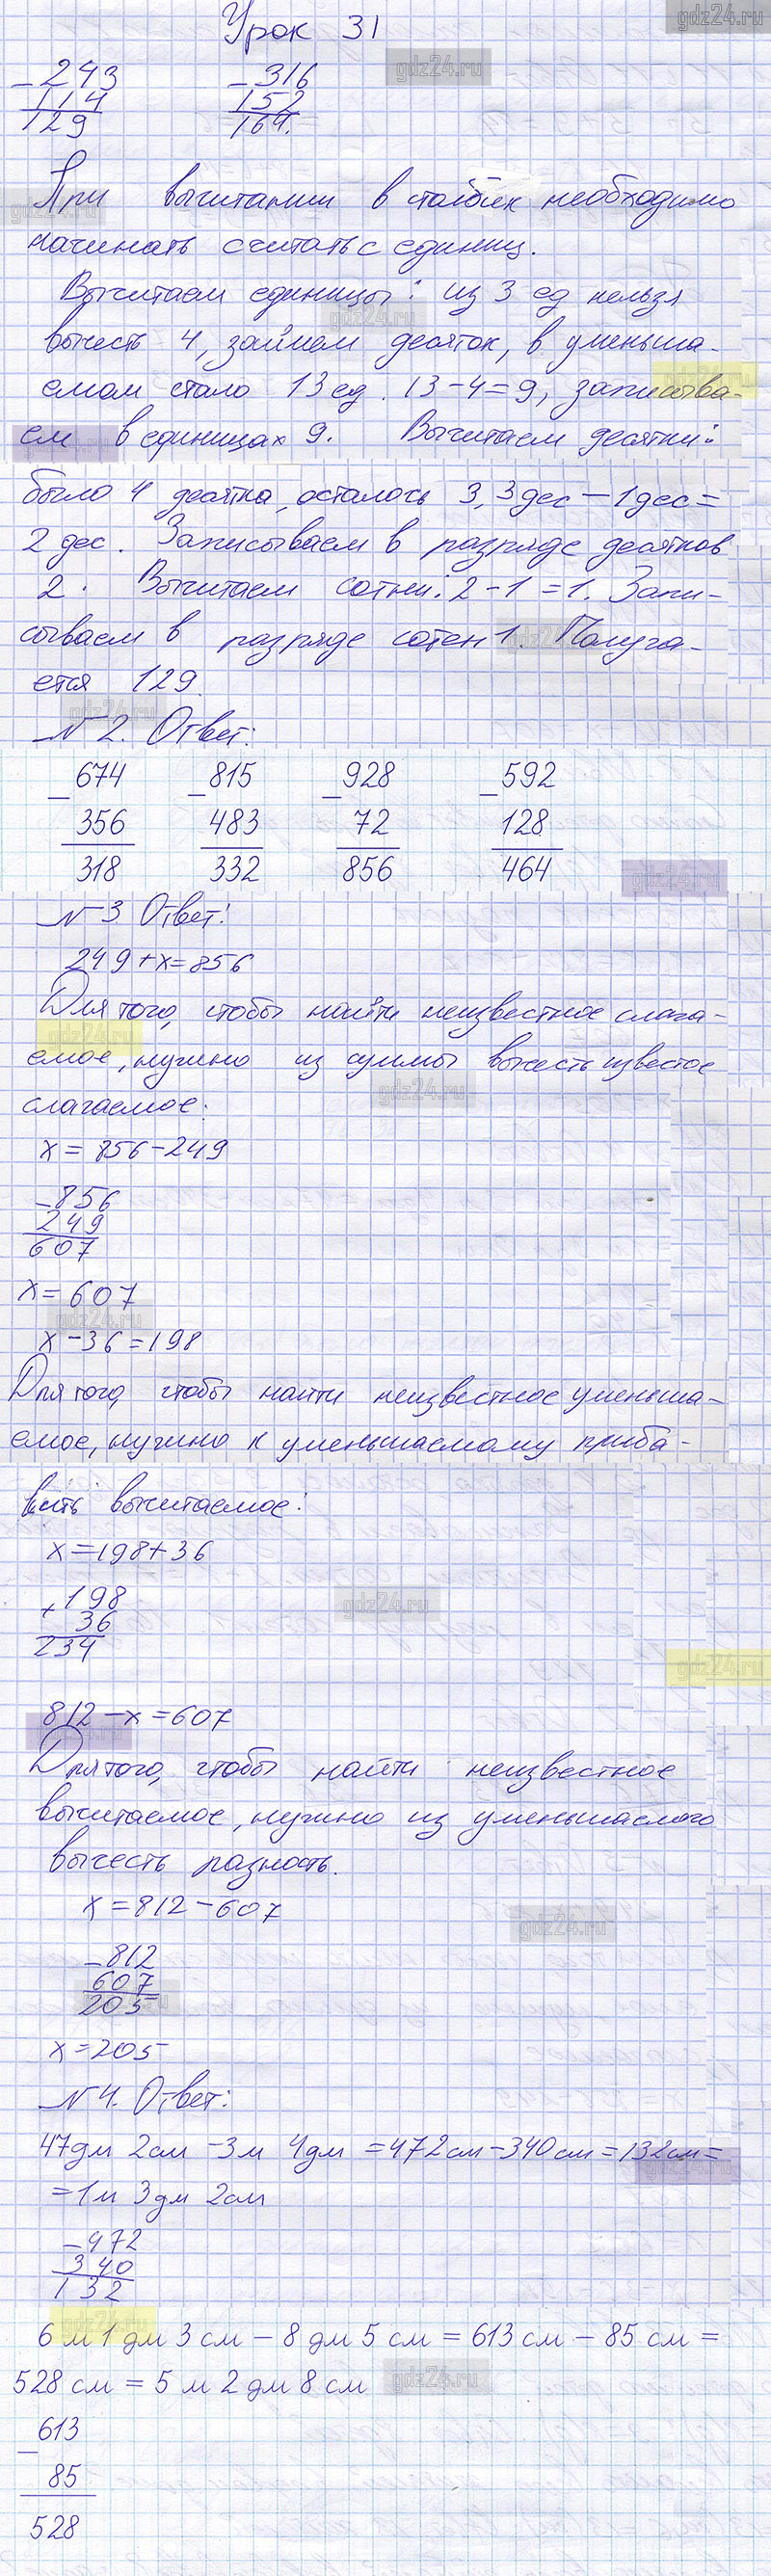 Урок 31
gdz24.ru
gdz24.ru
- 243 - 316
114 152
129 164.
При вычитании в столбик необходимо
gdz24.ru
начинать считать с единиц.
Вычитаем единицы: из 3 ед нельзя
gdz24.ru
вычесть 4, займем десяток, в уменьша-
gdz24.ru
емом стало 13 ед. 13-4=9, записыва-
ем в единицах 9. Вычитаем десятки:
было 4 десятка, осталось 3, 3 дес - 1 дес =
2 дес. Записываем в разряде десятков
2. Вычитаем сотни: 2-1=1. Запи-
сываем в разряде сотен 1. Получа-
gdz24.ru
ется 129.
gdz24.ru
N 2. Ответ:
- 674 - 815 - 928 - 592
356 483 72 128
318 332 856 464
gdz24.ru
N 3 Ответ:
249+x=856
Для того, чтобы найти неизвестное слага-
gdz24.ru
емое, нужно из суммы вычесть известое
gdz24.ru
слагаемое:
x = 856-249
- 856
249
607
x = 607
gdz24.ru
x-36=198
Для того, чтобы найти неизвестное уменьша-
емое, нужно к уменьшаемому приба-
вить вычитаемое:
x=198+36
+ 198
36
234
gdz24.ru
gdz24.ru
812-x=607
Для того, чтобы найти неизвестное
вычитаемое, нужно из уменьшаемого
вычесть разность.
x=812-607
gdz24.ru
- 812
607
205
gdz24.ru
x=205
N 4. Ответ:
47дм 2см - 3м 4дм = 472см - 340см = 132см =
gdz24.ru
= 1м 3дм 2см
- 472
340
132
gdz24.ru
6 м 1 дм 3 см - 8 дм 5 см = 613 см - 85 см =
528 см = 5 м 2 дм 8 см
gdz24.ru
- 613
85
528